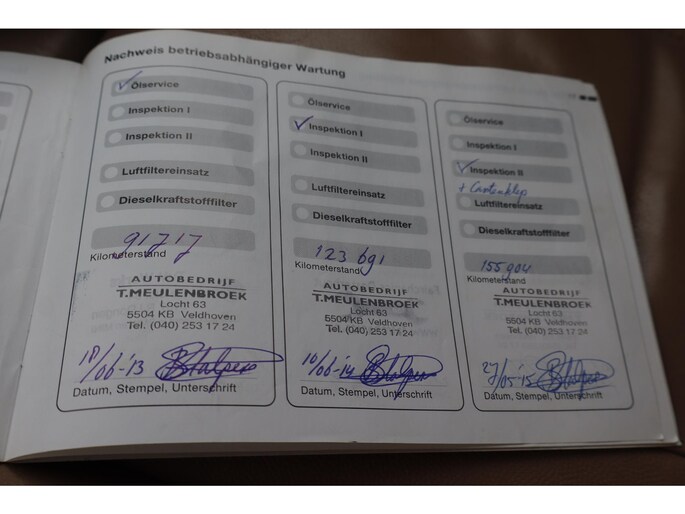 Nachweis betriebsabhängiger Wartung
Ölservice
Inspektion I
Inspektion II
Luftfiltereinsatz
Dieselkraftstofffilter
91717
Kilometerstand
AUTOBEDRIJF
T.MEULENBROEK
Locht 63
5504 KB Veldhoven
Tel. (040) 253 17 24
18/06-'13
Datum, Stempel, Unterschrift
Ölservice
Inspektion I
Inspektion II
Luftfiltereinsatz
Dieselkraftstofffilter
123691
Kilometerstand
AUTOBEDRIJF
T.MEULENBROEK
Locht 63
5504 KB Veldhoven
Tel. (040) 253 17 24
10/06-'14
Datum, Stempel, Unterschrift
Ölservice
Inspektion I
Inspektion II
Luftfiltereinsatz
Dieselkraftstofffilter
155904
Kilometerstand
AUTOBEDRIJF
T.MEULENBROEK
Locht 63
5504 KB Veldhoven
Tel. (040) 253 17 24
27/05-'15
Datum, Stempel, Unterschrift